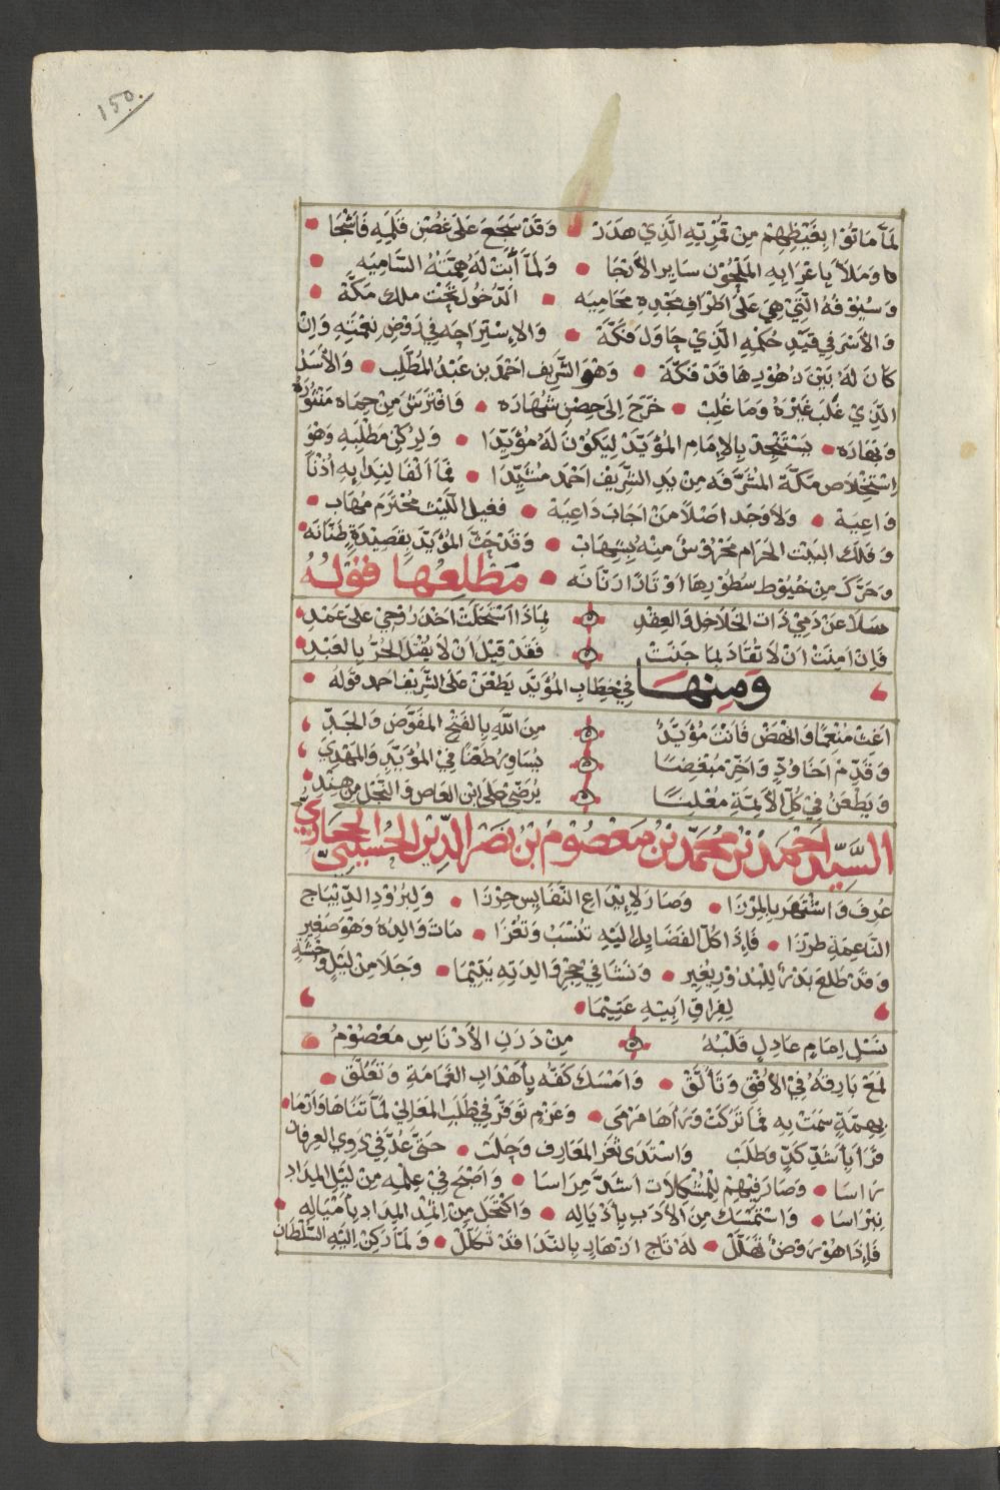 150
لمآ ماتوا بغيظهم من قمريه الذي هدر • وقد سجع على غصن قلمه فاشجا •
وملأ باغرابه الملحون ساير الأرجا • ولمآ أبت له همته الساميه
وسيوفه التي هي على اطراف مجده محاميه • الدخول تحت ملك مكة •
والأسر في قيد حكمه الذي حاول فكة • والإستراحه في روض نعمته وان
كان له بين زهورها قد فكة • وهو الشريف احمد بن عبد المطلب • والأسد
الذي غلب غيره وما غلب • خرج الى حصن شهاره • وافترش من حماه منثوره
وبهاره • يستنجد بالإمام المؤيد ليكون له مؤيدا • ولركن مطلبه وهو
استخلاص مكة المشرفه من يد الشريف احمد مشيدا • فما الفا لندايه أذنا
واعية • ولا وجد اصلا من اجاب داعية • فغيل الليث محترم مهاب •
وفلك البيت الحرام محروس منه بشهاب • وقد حث المؤيد بقصيدة طنانه •
وحرك من خيوط سطورها اوتارا رنانه • مطلعها قوله
سلا عن دمي ذات الخلاخل والعقد لماذا استحلت اخذ روحي على عمد •
فان امنت ان لا تقاد بما جنت فقد قيل ان لا يقتل الحر بالعبد •
ومنها في خطاب المؤيد يطعن على الشريف احمد قوله •
اغث منعما وانهض فانت مؤيد من الله بالفتح المفوض والجد
وقدم اخا ود واخر مبغضا يساور طعنا في المؤيد والمهدي
ويطعن في كل الأئمة معلنا يرضى على ابن العاص والنجل من هند
السيد احمد بن محمد بن معصوم بن نصر الدين الحسيني الحجازي
عرف واشتهر بالمرزا • وصار لإبداع النفايس حرزا • ولبرود الديباج
الناعمة طرزا • فإذا كل الفضايل اليه تنسب وتعزا • مات والده وهو صغير
وقد طلع بدرا للبدور يغير • ونشا في حجر والدته يتيما • وجلا من ليل وحشة
لفراق ابيه عتيما •
نسل امام عادل قلبه من درن الأدناس معصوم •
لمع بارقه في الأفق وتألق • وامسك كفه بأهداب الغمامة وتعلق •
بهمة سمت به فما تركت وراها مرمى • وعزم توفر في طلب المعالي لمآ تناها وارتما •
فرا بأشد كد وطلب واستدى ثغر المعارف وجلب • حتى عد في ذوي العرفان
راسا • وصار فيهم للمشكلات اشد مراسا • واصبح في علمه من ليل المداد
نبراسا • واستمسك من الأدب بأذياله • واكتحل من اثمد المداد بأمياله •
فإذا هو روض تهلل • له تاج ازهار بالندا قد تكلل • ولمآ ركن اليه السلطان